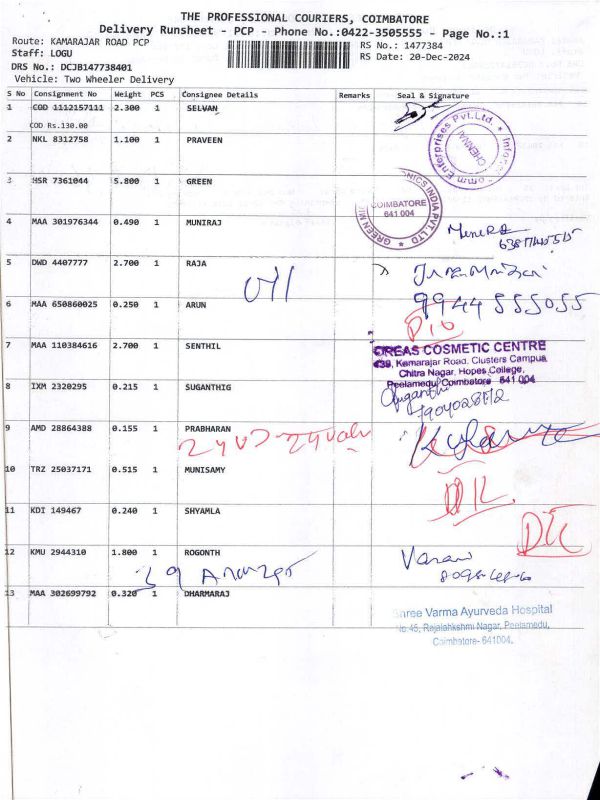 THE PROFESSIONAL COURIERS, COIMBATORE
Delivery Runsheet - PCP - Phone No.:0422-3505555 - Page No.:1
Route: KAMARAJAR ROAD PCP
RS No.: 1477384
Staff: LOGU
RS Date: 20-Dec-2024
DRS No.: DCJB147738401
Vehicle: Two Wheeler Delivery
S No Consignment No Weight PCS Consignee Details Remarks Seal & Signature
1 COD 1112157111 2.300 1 SELVAN
COD Rs.130.00
2 NKL 8312758 1.100 1 PRAVEEN
Enterprises Pvt.Ltd.
CHENNAI
3 HSR 7361044 5.800 1 GREEN
COIMBATORE
641 004
4 MAA 301976344 0.490 1 MUNIRAJ
5 DWD 4407777 2.700 1 RAJA
6 MAA 650860025 0.250 1 ARUN
9944555055
7 MAA 110384616 2.700 1 SENTHIL
COSMETIC CENTRE
Kamarajar Road, Clusters Campus
Chitra Nagar, Hopes College,
Peelamedu, Coimbatore 641 004
8 IXM 2320295 0.215 1 SUGANTHIG
Suganthi
9 AMD 28864388 0.155 1 PRABHARAN
10 TRZ 25037171 0.515 1 MUNISAMY
11 KDI 149467 0.240 1 SHYAMLA
12 KMU 2944310 1.800 1 ROGONTH
13 MAA 302699792 0.320 1 DHARMARAJ
Shree Varma Ayurveda Hospital
No.45, Rajalahkshmi Nagar, Peelamedu,
Coimbatore- 641004.